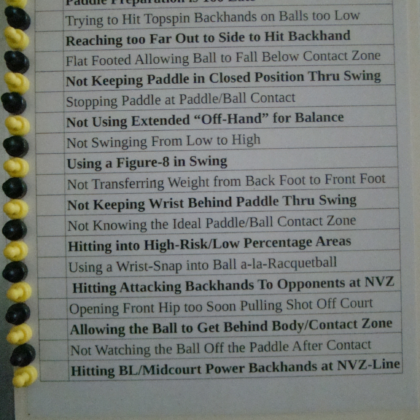 Paddle Preparation is Too Late
Trying to Hit Topspin Backhands on Balls too Low
Reaching too Far Out to Side to Hit Backhand
Flat Footed Allowing Ball to Fall Below Contact Zone
Not Keeping Paddle in Closed Position Thru Swing
Stopping Paddle at Paddle/Ball Contact
Not Using Extended “Off-Hand” for Balance
Not Swinging From Low to High
Using a Figure-8 in Swing
Not Transferring Weight from Back Foot to Front Foot
Not Keeping Wrist Behind Paddle Thru Swing
Not Knowing the Ideal Paddle/Ball Contact Zone
Hitting into High-Risk/Low Percentage Areas
Using a Wrist-Snap into Ball a-la-Racquetball
Hitting Attacking Backhands To Opponents at NVZ
Opening Front Hip too Soon Pulling Shot Off Court
Allowing the Ball to Get Behind Body/Contact Zone
Not Watching the Ball Off the Paddle After Contact
Hitting BL/Midcourt Power Backhands at NVZ-Line